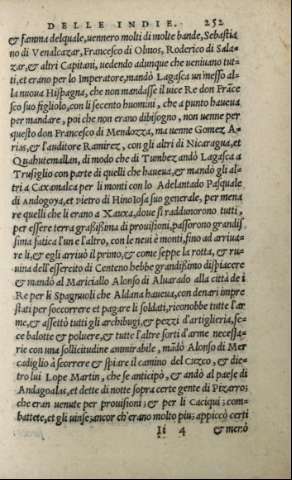 DELLE INDIE. 252
& famna delquale, uennero molti di molte bande, Sebastia
no di Venalcazar, Francesco di Olmos, Roderico di Sala-
zar, & altri Capitani, uedendo adunque che ueniuano tut-
ti, et erano per lo Imperatore, mandò Lagasca un messo al-
la nuoua Hispagna, che non mandasse il uice Re don Frãce
sco suo figliolo, con li secento huomini, che a punto haueua
per mandare, poi che non erano dibisogno, non uenne per
questo don Francesco di Mendozza, ma uenne Gomez A-
rias, & l'auditore Ramirez, con gli altri di Nicaragua, et
Quahutemallan, di modo che di Tumbez andò Lagasca a
Trusiglio con parte di quelli che haueua, & mandò gli al-
tri a Caxamalca per li monti con lo Adelantado Pasquale
di Andogoya, et pietro di Hinoiosa suo generale, per mena
re quelli che li erano a Xauxa, doue si raddunorono tutti,
per essere terra grassissima di prouisioni, passorono grandis
sima fatica l'un e l'altro, con le neui è monti, fino ad arriua-
re li, & egli arriuò il primo, & come seppe la rotta, & ru-
uina dell'essercito di Centeno hebbe grandissimo dispiacere
& mandò al Mariciallo Alonso di Aluarado alla città de i
Re per li Spagnuoli che Aldana haueua, con denari impre
stati per soccorrere et pagare li soldati, riconobbe tutte l'ar
me, & assettò tutti gli archibugi, & pezzi d'artiglieria, fe-
ce balotte & poluere, & tutte l'altre sorti d'arme necessa-
rie con una sollicitudine ammirabile, mãdò Alonso di Mer
cadiglio à scorrere & spiare il camino del Cuzco, & die-
tro lui Lope Martin, che se anticipò, & andò al paese di
Andagoalas, et dette di notte sopra certe gente di Pizarro,
che eran uenute per prouisioni, & per li Caciqui; com-
battete, et gli uinse, ancor ch'erano molto piu; appiccò certi
Ii 4 & menò